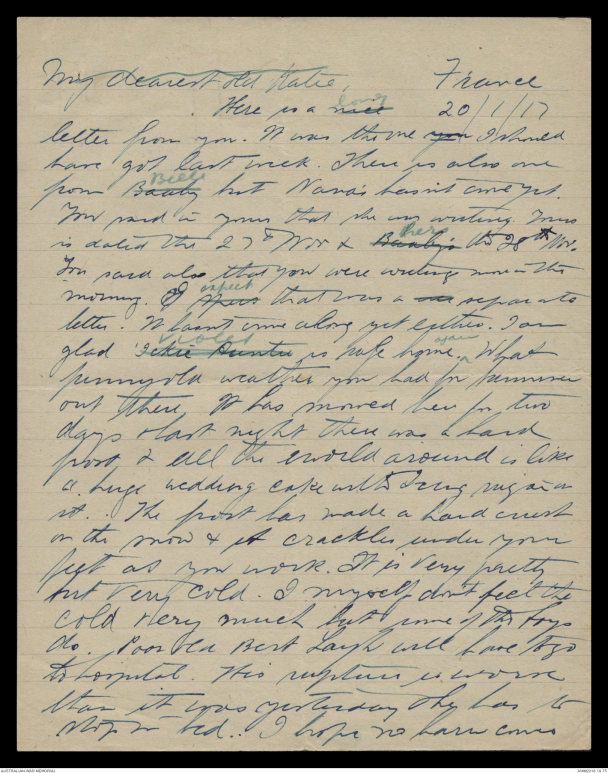 My dearest old Katie, France
Here is a nice long 20/1/17
letter from you. It was the one you I should
have got last week. There is also one
from Baaby Billy but Nana's hasn't come yet.
You said in yours that she was writing. Yours
is dated the 27th Nov & Baaby's hers the 28th Nov.
You said also that you were writing more in the
morning. I expect that was a separate
letter. It hasn't come along yet either. I am
glad Violet Auntie is safe home again. What
funny old weather you had for summer
out there. It has snowed here for two
days & last night there was a hard
frost & all the world around is like
a huge wedding cake with Icing sugar on
it.. The frost has made a hard crust
on the snow & it crackles under your
feet as you work. It is very pretty
but very cold. I myself don't feel the
cold very much but some of the boys
do. Poor old Bert will have to go
to hospital. His rupture is worse
than it was yesterday & he has to
stop in bed.. I hope no harm comes
AUSTRALIAN WAR MEMORIAL